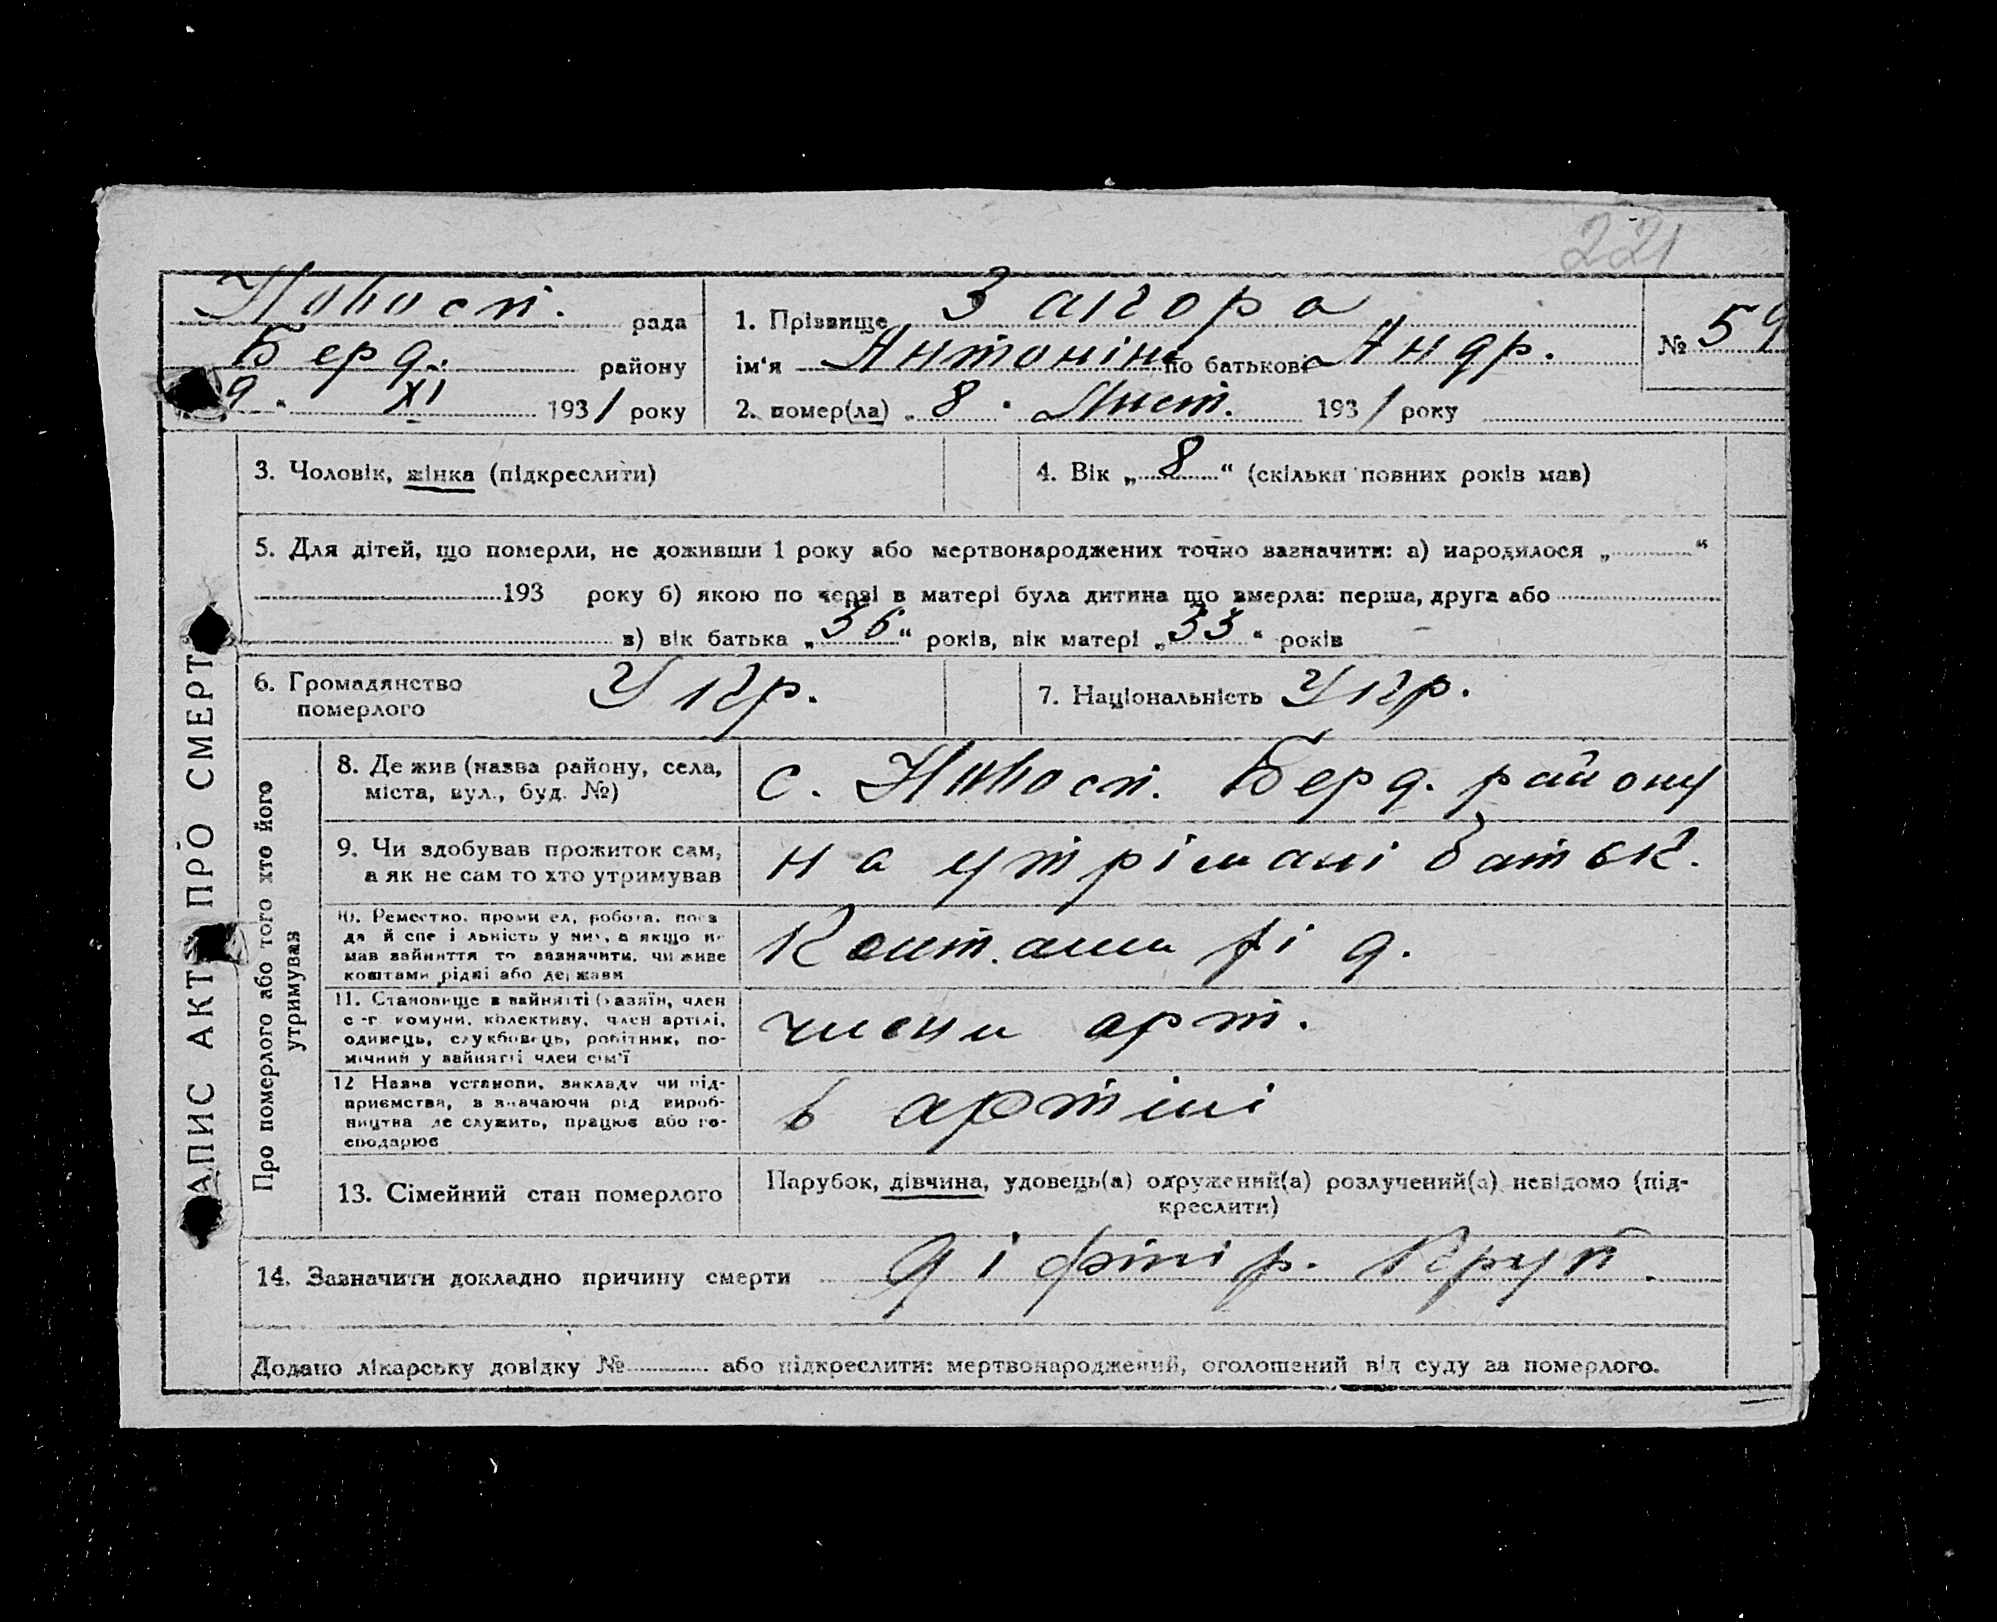 221
Новосп. рада
Берд. району
9 " XI 1931 року
1. Прізвище Загора
ім'я Антоніна по батькові Андр.
2. помер(ла) „ 8 " Лист. 1931 року
№ 59
ЗАПИС АКТУ ПРО СМЕРТЬ
3. Чоловік, жінка (підкреслити)
4. Вік „ 8 " (скільки повних років мав)
5. Для дітей, що померли, не доживши 1 року або мертвонароджених точно зазначити: а) народилося „ "
193 року б) якою по черзі в матері була дитина що вмерла: перша, друга або
в) вік батька „ 36 " років, вік матері „ 33 " років
6. Громадянство
померлого
Укр.
7. Національність Укр.
Про померлого або того хто його
утримував
8. Де жив (назва району, села,
міста, вул., буд. №)
с. Новосп. Берд. району
9. Чи здобував прожиток сам,
а як не сам то хто утримував
на утрімані батьк.
10. Ремество, промисел, робота, поса
да й спеціяльність у них, а якщо не
мав зайняття то зазначити, чи живе
коштами рідні або держави
Кошт.ами рід.
11. Становище в зайнятті (хазяїн, член
с.-г. комуни, колективу, член артілі,
одинець, службовець, робітник, по-
мічний у зайнятті член сім'ї
члени арт.
12 Назва установи, закладу чи під-
приємства, зазначаючи рід вироб-
ництва де служить, працює або го-
сподарює
в артілі
13. Сімейний стан померлого
Парубок, дівчина, удовець(а) одружений(а) розлучений(а) невідомо (під-
креслити)
14. Зазначити докладно причину смерти діфтір. Круп.
Додано лікарську довідку № або підкреслити: мертвонароджений, оголошений від суду за померлого.